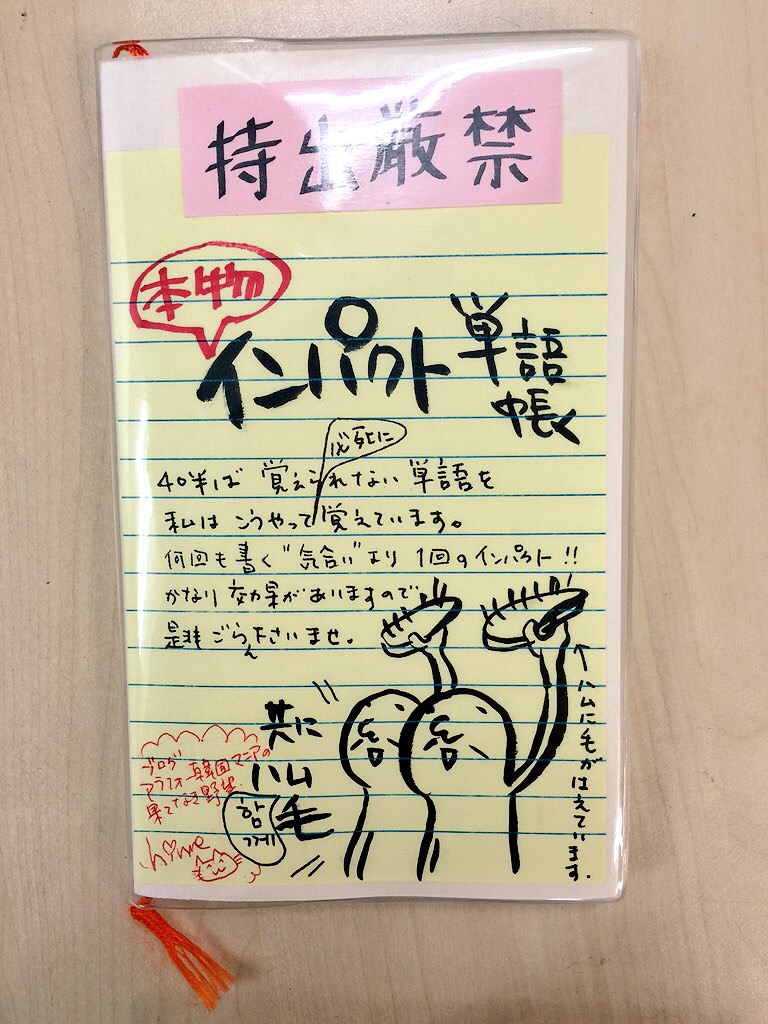 持出厳禁
本物
インパクト単語帳
必死に
40半ば 覚えられない 単語を
私は こうやって覚えています。
何回も書く"気合い"より 1回のインパクト!!
かなり 効果がありますので
是非 ごらん下さいませ。
↑ハムに毛がはえています。
共に
ハム
毛
함께
ブログ
アラフォー韓国マニアの
果てなき野望
hime